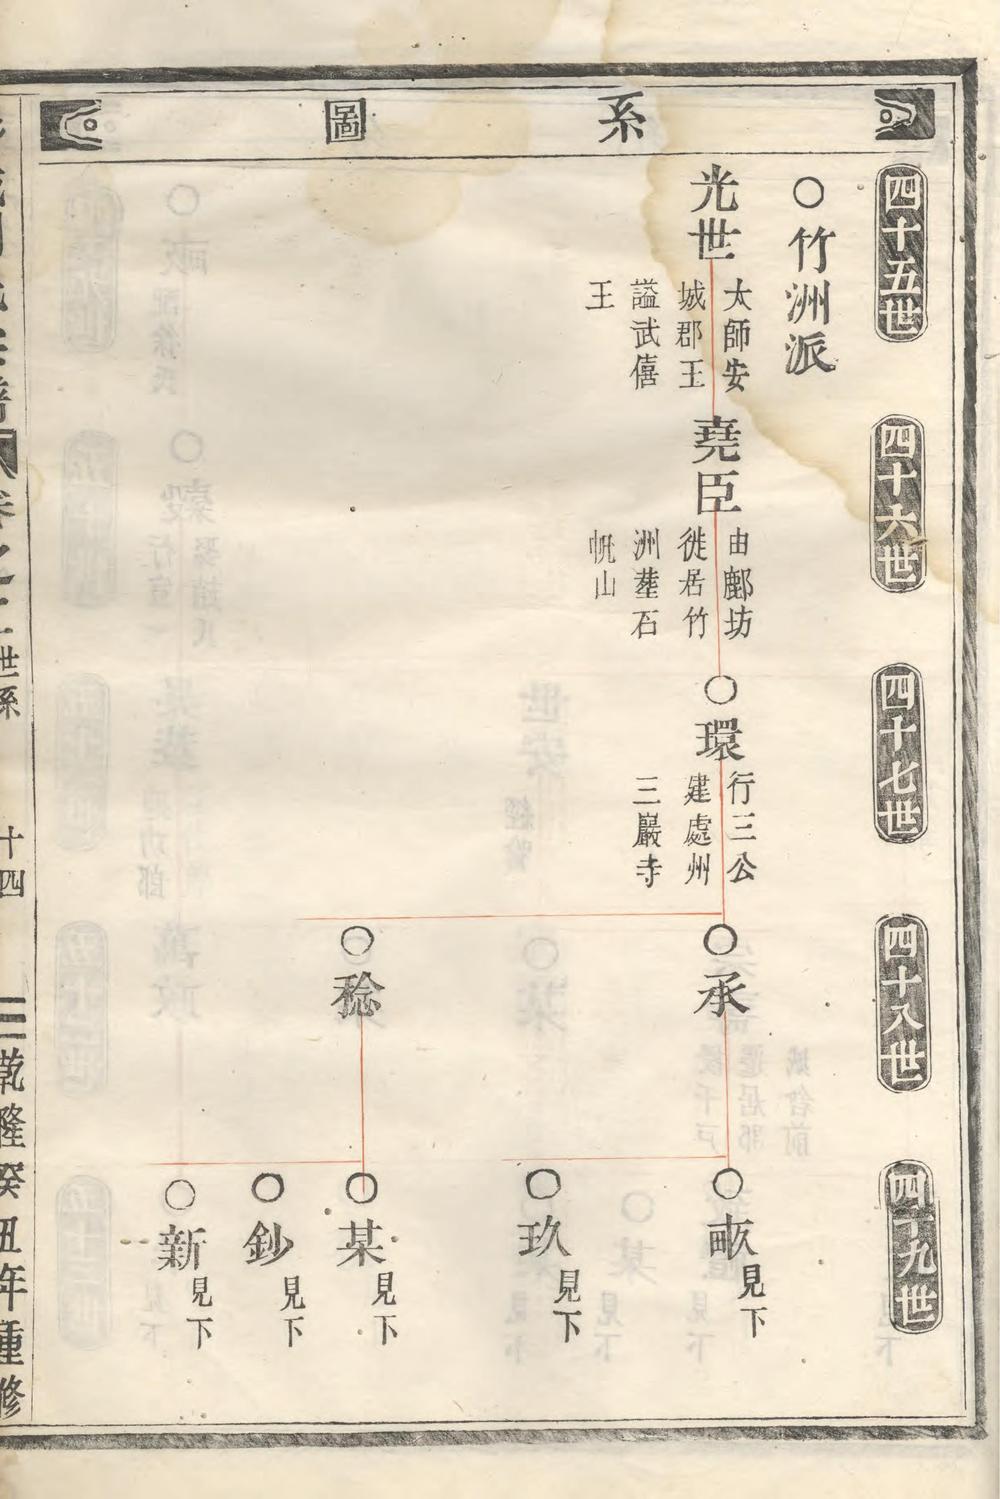 系圖
四十五世
四十六世
四十七世
四十八世
四十九世
○竹洲派
光世
太師安
城郡王
謚武僖
王
堯臣
由鄜坊
徙居竹
洲塟石
帆山
○環
行三公
建處州
三巖寺
○承
○稔
○畞
見下
○玖
見下
○某
見下
○鈔
見下
○新
見下
卷之二
世系
十四
乾隆癸丑年重修